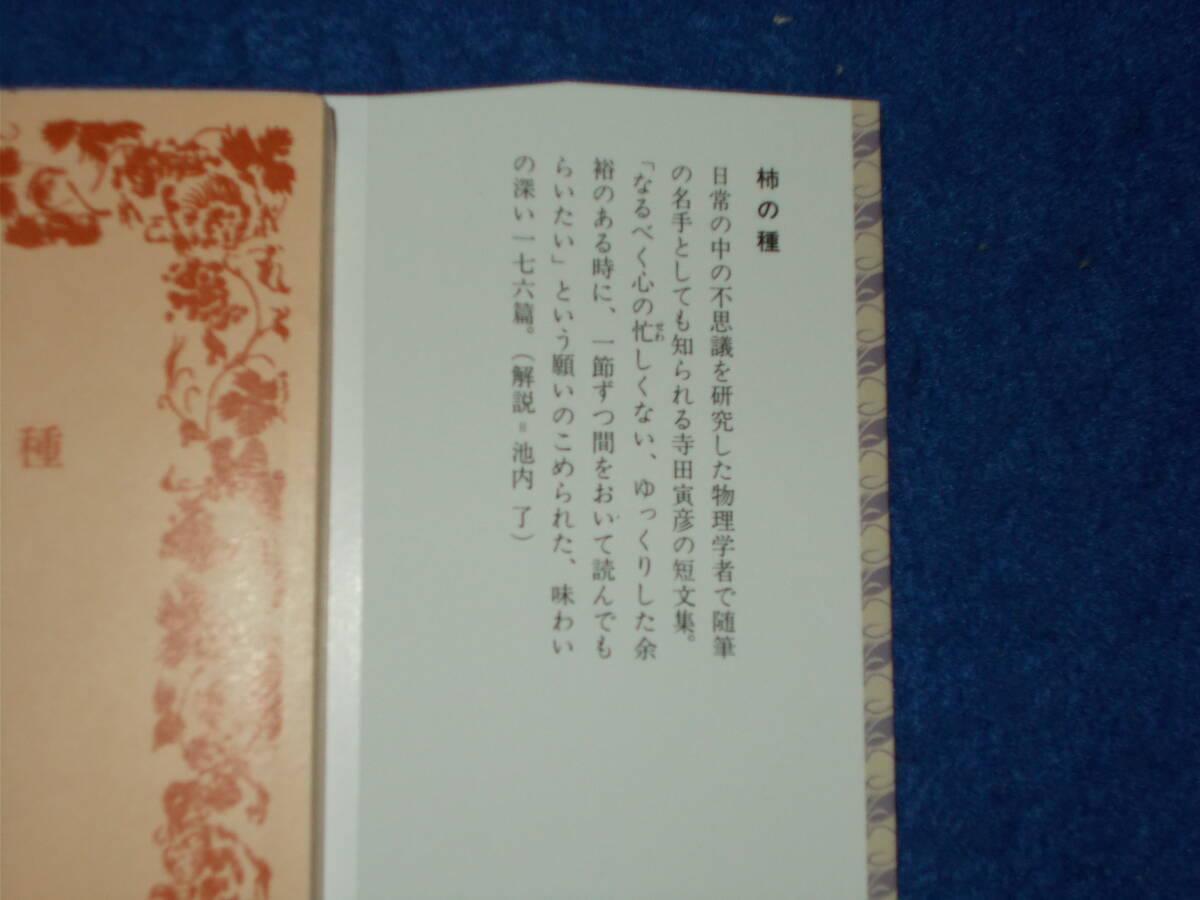 柿の種
日常の中の不思議を研究した物理学者で随筆
の名手としても知られる寺田寅彦の短文集。
「なるべく心の忙しくない、ゆっくりした余
せわ
裕のある時に、一節ずつ間をおいて読んでも
らいたい」という願いのこめられた、味わい
の深い一七六篇。(解説＝池内 了)
種